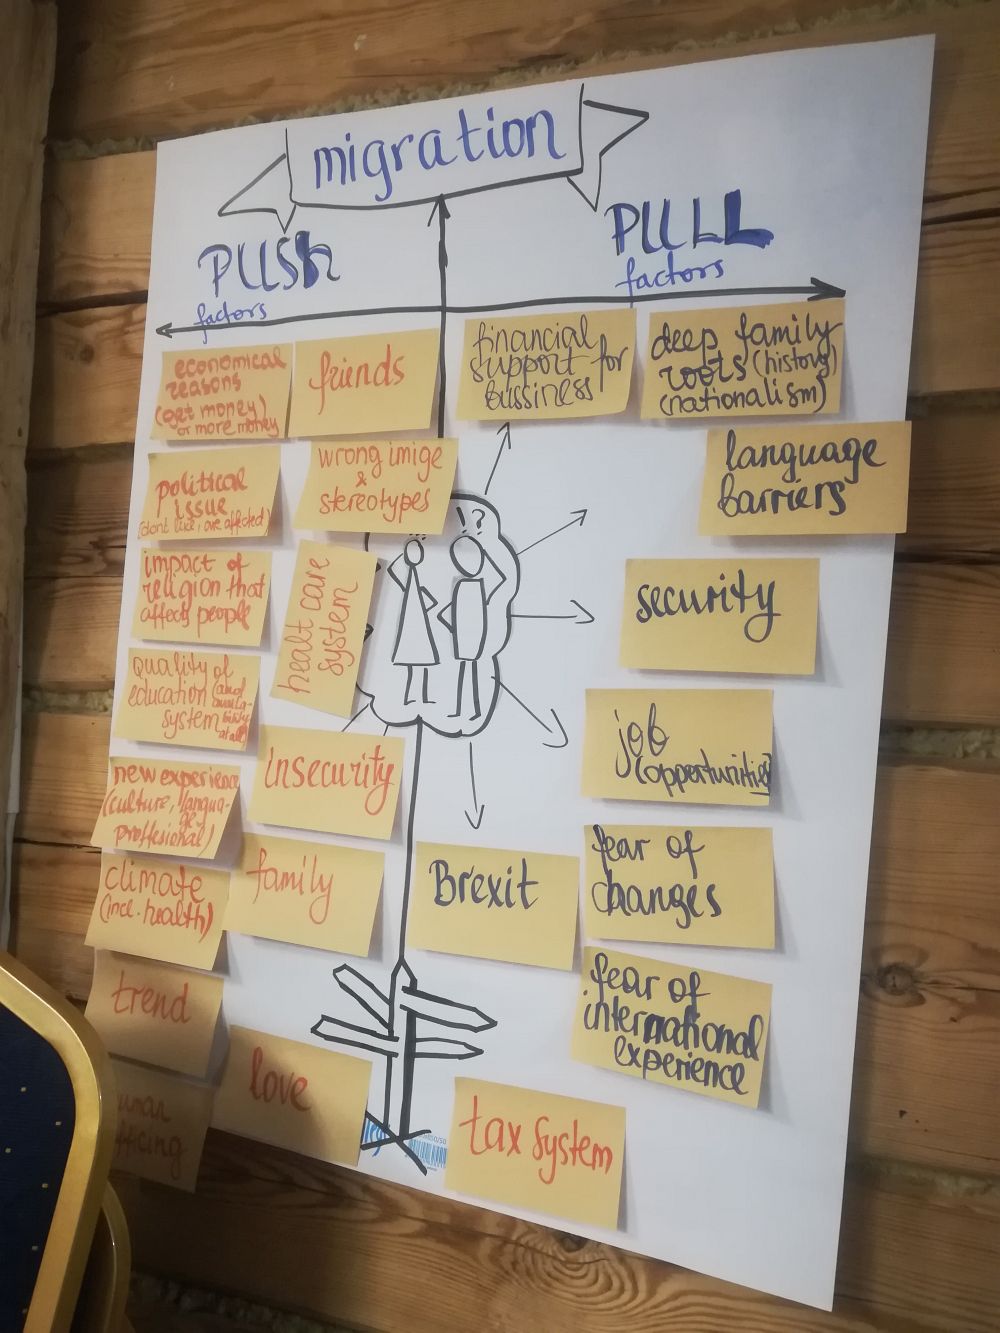 migration
PUSh
factors
PULL
factors
economical
reasons
(get money)
or more money
friends
financial
support for
bussiness
deep family
roots (history)
(nationalism)
political
issue
(dont like, are affected)
wrong imige
&
stereotypes
language
barriers
impact of
religion that
affects people
healt care
system
security
quality of
education (and
system
at all)
insecurity
job
(opportunities)
new experience
(culture, langua-
ge,
proffesional)
climate
(incl. health)
family
Brexit
fear of
changes
trend
love
fear of
international
experience
tax system
! ?